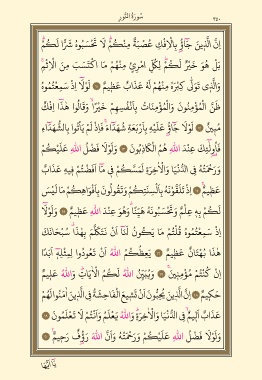 سُورَةُ النُّورِ
٣٥٠
إِنَّ الَّذِينَ جَاؤُ۫ بِالْاِفْكِ عُصْبَةٌ مِنْكُمْۜ لَا تَحْسَبُوهُ شَرًّا لَكُمْۜ
بَلْ هُوَ خَيْرٌ لَكُمْۜ لِكُلِّ امْرِئٍ مِنْهُمْ مَا اكْتَسَبَ مِنَ الْاِثْمِۚ
وَالَّذِي تَوَلّٰى كِبْرَهُ مِنْهُمْ لَهُ عَذَابٌ عَظِيمٌ ۞ لَوْلَٓا اِذْ سَمِعْتُمُوهُ
ظَنَّ الْمُؤْمِنُونَ وَالْمُؤْمِنَاتُ بِاَنْفُسِهِمْ خَيْرًاۙ وَقَالُوا هٰذَٓا اِفْكٌ
مُبِينٌ ۞ لَوْلَا جَاؤُ۫ عَلَيْهِ بِاَرْبَعَةِ شُهَدَٓاءَۚ فَاِذْ لَمْ يَأْتُوا بِالشُّهَدَٓاءِ
فَاُو۬لٰٓئِكَ عِنْدَ اللّٰهِ هُمُ الْكَاذِبُونَ ۞ وَلَوْلَا فَضْلُ اللّٰهِ عَلَيْكُمْ
وَرَحْمَتُهُ فِي الدُّنْيَا وَالْاٰخِرَةِ لَمَسَّكُمْ فِي مَٓا اَفَضْتُمْ فِيهِ عَذَابٌ
عَظِيمٌۚ ۞ اِذْ تَلَقَّوْنَهُ بِاَلْسِنَتِكُمْ وَتَقُولُونَ بِاَفْوَاهِكُمْ مَا لَيْسَ
لَكُمْ بِهِ عِلْمٌ وَتَحْسَبُونَهُ هَيِّنًاۗ وَهُوَ عِنْدَ اللّٰهِ عَظِيمٌ ۞ وَلَوْلَٓا
اِذْ سَمِعْتُمُوهُ قُلْتُمْ مَا يَكُونُ لَنَٓا اَنْ نَتَكَلَّمَ بِهٰذَاۗ سُبْحَانَكَ
هٰذَا بُهْتَانٌ عَظِيمٌ ۞ يَعِظُكُمُ اللّٰهُ اَنْ تَعُودُوا لِمِثْلِهِ اَبَدًا
اِنْ كُنْتُمْ مُؤْمِنِينَۚ ۞ وَيُبَيِّنُ اللّٰهُ لَكُمُ الْاٰيَاتِۜ وَاللّٰهُ عَلِيمٌ
حَكِيمٌ ۞ اِنَّ الَّذِينَ يُحِبُّونَ اَنْ تَشِيعَ الْفَاحِشَةُ فِي الَّذِينَ اٰمَنُوا لَهُمْ
عَذَابٌ اَلِيمٌۙ فِي الدُّنْيَا وَالْاٰخِرَةِۜ وَاللّٰهُ يَعْلَمُ وَاَنْتُمْ لَا تَعْلَمُونَ ۞
وَلَوْلَا فَضْلُ اللّٰهِ عَلَيْكُمْ وَرَحْمَتُهُ وَاَنَّ اللّٰهَ رَؤُ۫فٌ رَحِيمٌ۟ ۞
يَٓا اَيُّهَا